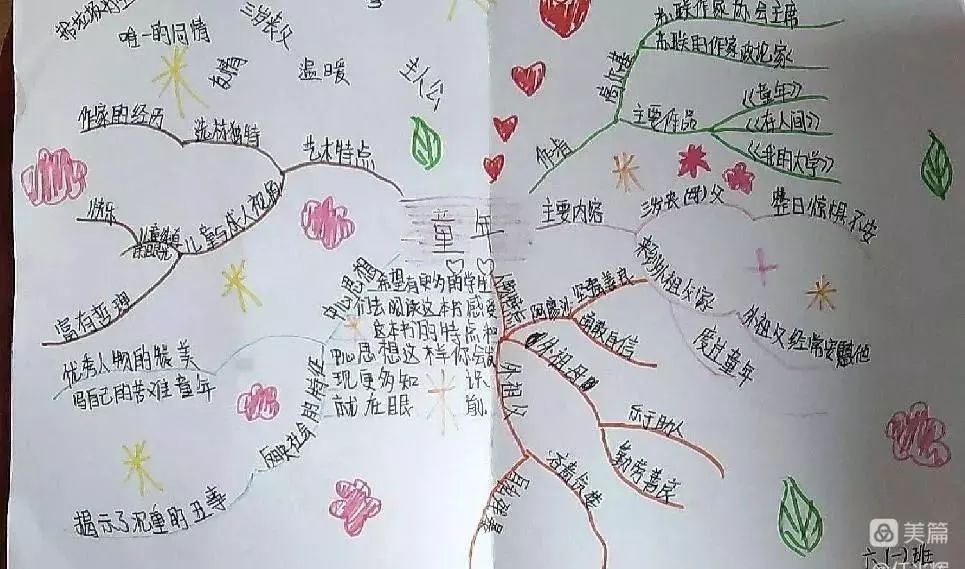 唯一的同情
友情
三岁丧父
温暖
主人公
作家的经历
选材独特
艺术特点
儿童与成人视角
快乐
富有哲理
童年
作者
高尔基
苏联作家协会主席
苏联用作家政论家
主要作品
《童年》
《在人间》
《我的大学》
主要内容
三岁丧(母)父
整日惊惧不安
来到外祖父家
外祖父经常安慰他
度过童年
中心思想
优秀人物的赞美
写自己的苦难童年
反映社会的特征
揭示了沉重的丑事
希望有更多的学生
们去阅读这本书感受
这本书的特点和
中心思想这样你会发
现更多知识
就在眼前
阿廖沙
坚强善良
自信
外祖母
乐于助人
勤劳善良
外祖父
吝啬
六(一)班
美篇